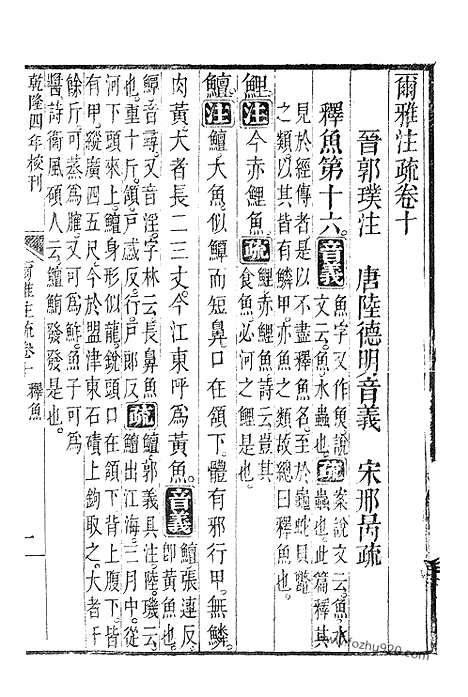 爾雅注疏卷十
晉郭璞注 唐陸德明音義 宋邢昺疏
釋魚第十六 音義 魚字又作𩵋說文云魚水蟲也 疏 案說文云魚水蟲也此篇釋其
見於經傳者是以不盡釋魚名至於龜蛇貝鼈
之類以其皆有鱗甲亦魚之類故總曰釋魚也
鯉 注 今赤鯉魚 疏 鯉赤鯉魚詩云豈其食魚必河之鯉是也
鱣 注 鱣大魚似鱏而短鼻口在頷下體有邪行甲無鱗
肉黃大者長二三丈今江東呼爲黃魚 音義 鱣張連反即黃魚也
鱏音尋又音淫字林云長鼻魚也重千斤頷戶感反行戶郎反 疏 鱣郭義具注陸璣云鱣出江海三月中從
河下頭來上鱣身形似龍銳頭口在頷下背上腹下皆
有甲縱廣四五尺今於盟津東石磧上鉤取之大者千
餘斤可蒸爲臛又可爲鮓魚子可爲
醬詩衞風碩人云鱣鮪發發是也
乾隆四年校刊
爾雅注疏卷十 釋魚
一
fozhu920.com